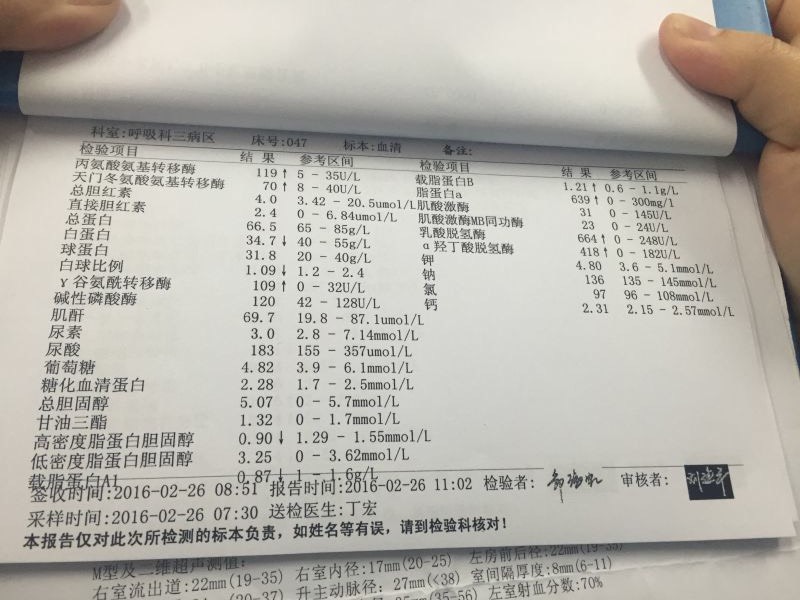 科室:呼吸科三病区 床号:047 标本:血清 备注:
检验项目 结 果 参考区间 检验项目 结 果 参考区间
丙氨酸氨基转移酶 119↑ 5 - 35U/L 载脂蛋白B 1.21↑ 0.6 - 1.1g/L
天门冬氨酸氨基转移酶 70↑ 8 - 40U/L 脂蛋白a 639↑ 0 - 300mg/l
总胆红素 4.0 3.42 - 20.5umol/L 肌酸激酶 31 0 - 145U/L
直接胆红素 2.4 0 - 6.84umol/L 肌酸激酶MB同功酶 23 0 - 24U/L
总蛋白 66.5 65 - 85g/L 乳酸脱氢酶 664↑ 0 - 248U/L
白蛋白 34.7↓ 40 - 55g/L α羟丁酸脱氢酶 418↑ 0 - 182U/L
球蛋白 31.8 20 - 40g/L 钾 4.80 3.6 - 5.1mmol/L
白球比例 1.09↓ 1.2 - 2.4 钠 136 135 - 145mmol/L
γ谷氨酰转移酶 109↑ 0 - 32U/L 氯 97 96 - 108mmol/L
碱性磷酸酶 120 42 - 128U/L 钙 2.31 2.15 - 2.57mmol/L
肌酐 69.7 19.8 - 87.1umol/L
尿素 3.0 2.8 - 7.14mmol/L
尿酸 183 155 - 357umol/L
葡萄糖 4.82 3.9 - 6.1mmol/L
糖化血清蛋白 2.28 1.7 - 2.5mmol/L
总胆固醇 5.07 0 - 5.7mmol/L
甘油三酯 1.32 0 - 1.7mmol/L
高密度脂蛋白胆固醇 0.90↓ 1.29 - 1.55mmol/L
低密度脂蛋白胆固醇 3.25 0 - 3.62mmol/L
载脂蛋白A1 0.87↓ 1 - 1.6g/L
签收时间:2016-02-26 08:51 报告时间:2016-02-26 11:02 检验者: 审核者:
采样时间:2016-02-26 07:30 送检医生:丁宏
本报告仅对此次所检测的标本负责，如姓名等有误，请到检验科核对！
M型及二维超声测值:
右室流出道:22mm(19-35) 右室内径:17mm(20-25) 左房前后径:22mm(19-35)
升主动脉径: 27mm(<38) 室间隔厚度:8mm(6-11)
左室射血分数:70%